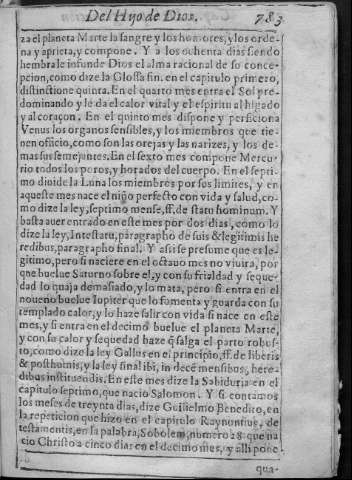 Del Hijo de Dios. 783
za el planeta Marte la sangre y los humores, y los orde-
na y aprieta, y compone. Y a los ochenta dias siendo
hembra le infunde Dios el alma racional de su conce-
pcion, como dize la Glossa fin. en el capitulo primero,
distinctione quinta. En el quarto mes entra el Sol pre-
dominando y le da el calor vital y el espiritu al higado
y al coraçon. En el quinto mes dispone y perficiona
Venus los organos sensibles, y los miembros que tie-
nen officio, como son las orejas y las narizes, y los de-
mas sus semejantes. En el sexto mes compone Mercu-
rio todos los poros, y horados del cuerpo. En el septi-
mo diuide la Luna los miembros por sus limites, y en
aqueste mes nace el niño perfecto con vida y salud, co-
mo dize la ley, septimo mense, ff. de statu hominum. Y
basta auer entrado en este mes por dos dias, como lo
dize la ley, Intestatu, paragrapho de suis & legitimis he
redibus, paragrapho final. Y assi se presume que es le-
gitimo, pero si naciere en el octauo mes no viuira, por
que buelue Saturno sobre el, y con su frialdad y seque-
dad lo quaja demasiado, y lo mata, pero si entra en el
noueno buelue Iupiter que lo fomenta y guarda con su
templado calor, y lo haze salir con vida si nace en este
mes, y si entra en el decimo buelue el planeta Marte,
y con su calor y sequedad haze q̃ salga el parto robus-
to, como dize la ley Gallus en el principio, ff. de liberis
& posthumis, y la ley final ibi, in decẽ mensibus, here-
dibus instituendis. En este mes dize la Sabiduria en el
capitulo septimo, que nacio Salomon. Y si contamos
los meses de treynta dias, dize Guilielmo Benedito, en
la repeticion que hizo en el capitulo Raynuntius, de
testamentis, en la palabra, Sobolem, numero 28 que na
cio Christo a cinco dias en el decimo mes, y alli pone
qua-